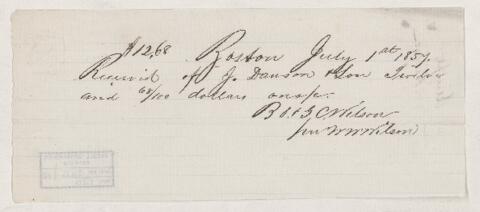 $12,68 Boston July 1st 1857.
Received of J. Dawson & Son Twelve
and 68/100 dollars on a/c.
B. & G. C. Wilson
per W W Wilson